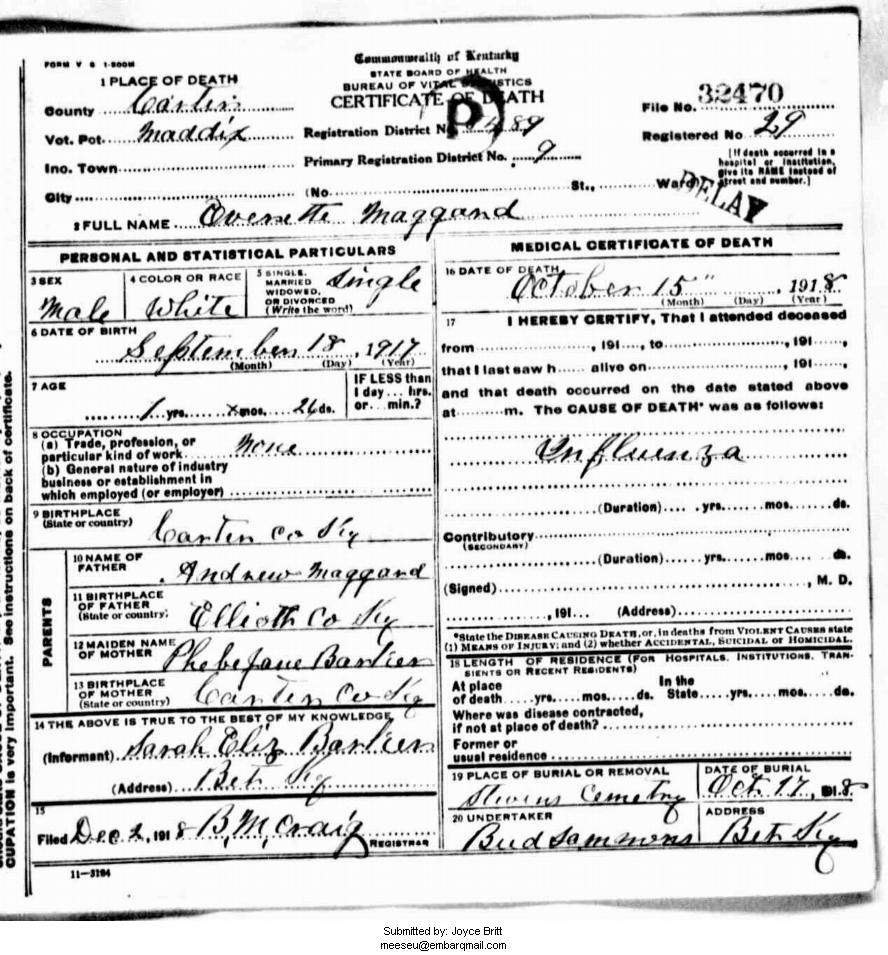 FORM V S 1-500M
Commonwealth of Kentucky
STATE BOARD OF HEALTH
BUREAU OF VITAL STATISTICS
CERTIFICATE OF DEATH
1 PLACE OF DEATH
County Carter
Vot. Pct. Maddix
Inc. Town
City
Registration District No. 89
Primary Registration District No. 9
(No. St., Ward)
File No. 32470
Registered No 29
[If death occurred in a hospital or institution, give its NAME instead of street and number.]
DELAY
2 FULL NAME Everette Maggard
PERSONAL AND STATISTICAL PARTICULARS
3 SEX
Male
4 COLOR OR RACE
White
5 SINGLE, MARRIED WIDOWED, OR DIVORCED (Write the word)
Single
6 DATE OF BIRTH
September 18, 1917
(Month) (Day) (Year)
7 AGE
1 yrs. x mos. 26 ds.
IF LESS than 1 day ... hrs. or ... min.?
8 OCCUPATION
(a) Trade, profession, or particular kind of work None
(b) General nature of industry business or establishment in which employed (or employer)
9 BIRTHPLACE
(State or country)
Carter Co Ky
PARENTS
10 NAME OF FATHER
Andrew Maggard
11 BIRTHPLACE OF FATHER
(State or country)
Elliott Co Ky
12 MAIDEN NAME OF MOTHER
Phebe Jane Barker
13 BIRTHPLACE OF MOTHER
(State or country)
Carter Co Ky
14 THE ABOVE IS TRUE TO THE BEST OF MY KNOWLEDGE
(Informant) Sarah Eliz Barker
(Address) Bet Ky
15
Filed Dec 2, 1918 B. M. Craig
REGISTRAR
11-3184
MEDICAL CERTIFICATE OF DEATH
16 DATE OF DEATH
October 15", 1918
(Month) (Day) (Year)
17 I HEREBY CERTIFY, That I attended deceased
from , 191 , to , 191 ,
that I last saw h alive on , 191 ,
and that death occurred on the date stated above
at m. The CAUSE OF DEATH* was as follows:
Influenza
(Duration) yrs. mos. ds.
Contributory
(SECONDARY)
(Duration) yrs. mos. ds.
(Signed) , M. D.
, 191 (Address)
*State the DISEASE CAUSING DEATH, or, in deaths from VIOLENT CAUSES state
(1) MEANS OF INJURY; and (2) whether ACCIDENTAL, SUICIDAL or HOMICIDAL.
18 LENGTH OF RESIDENCE (FOR HOSPITALS, INSTITUTIONS, TRANSIENTS OR RECENT RESIDENTS)
At place of death yrs. mos. ds. In the State yrs. mos. ds.
Where was disease contracted, if not at place of death?
Former or usual residence
19 PLACE OF BURIAL OR REMOVAL
Stevens Cemetry
DATE OF BURIAL
Oct 17, 1918
20 UNDERTAKER
Bud Sammons
ADDRESS
Bet Ky
CUPATION is very important. See instructions on back of certificate.
Submitted by: Joyce Britt
meeseu@embarqmail.com